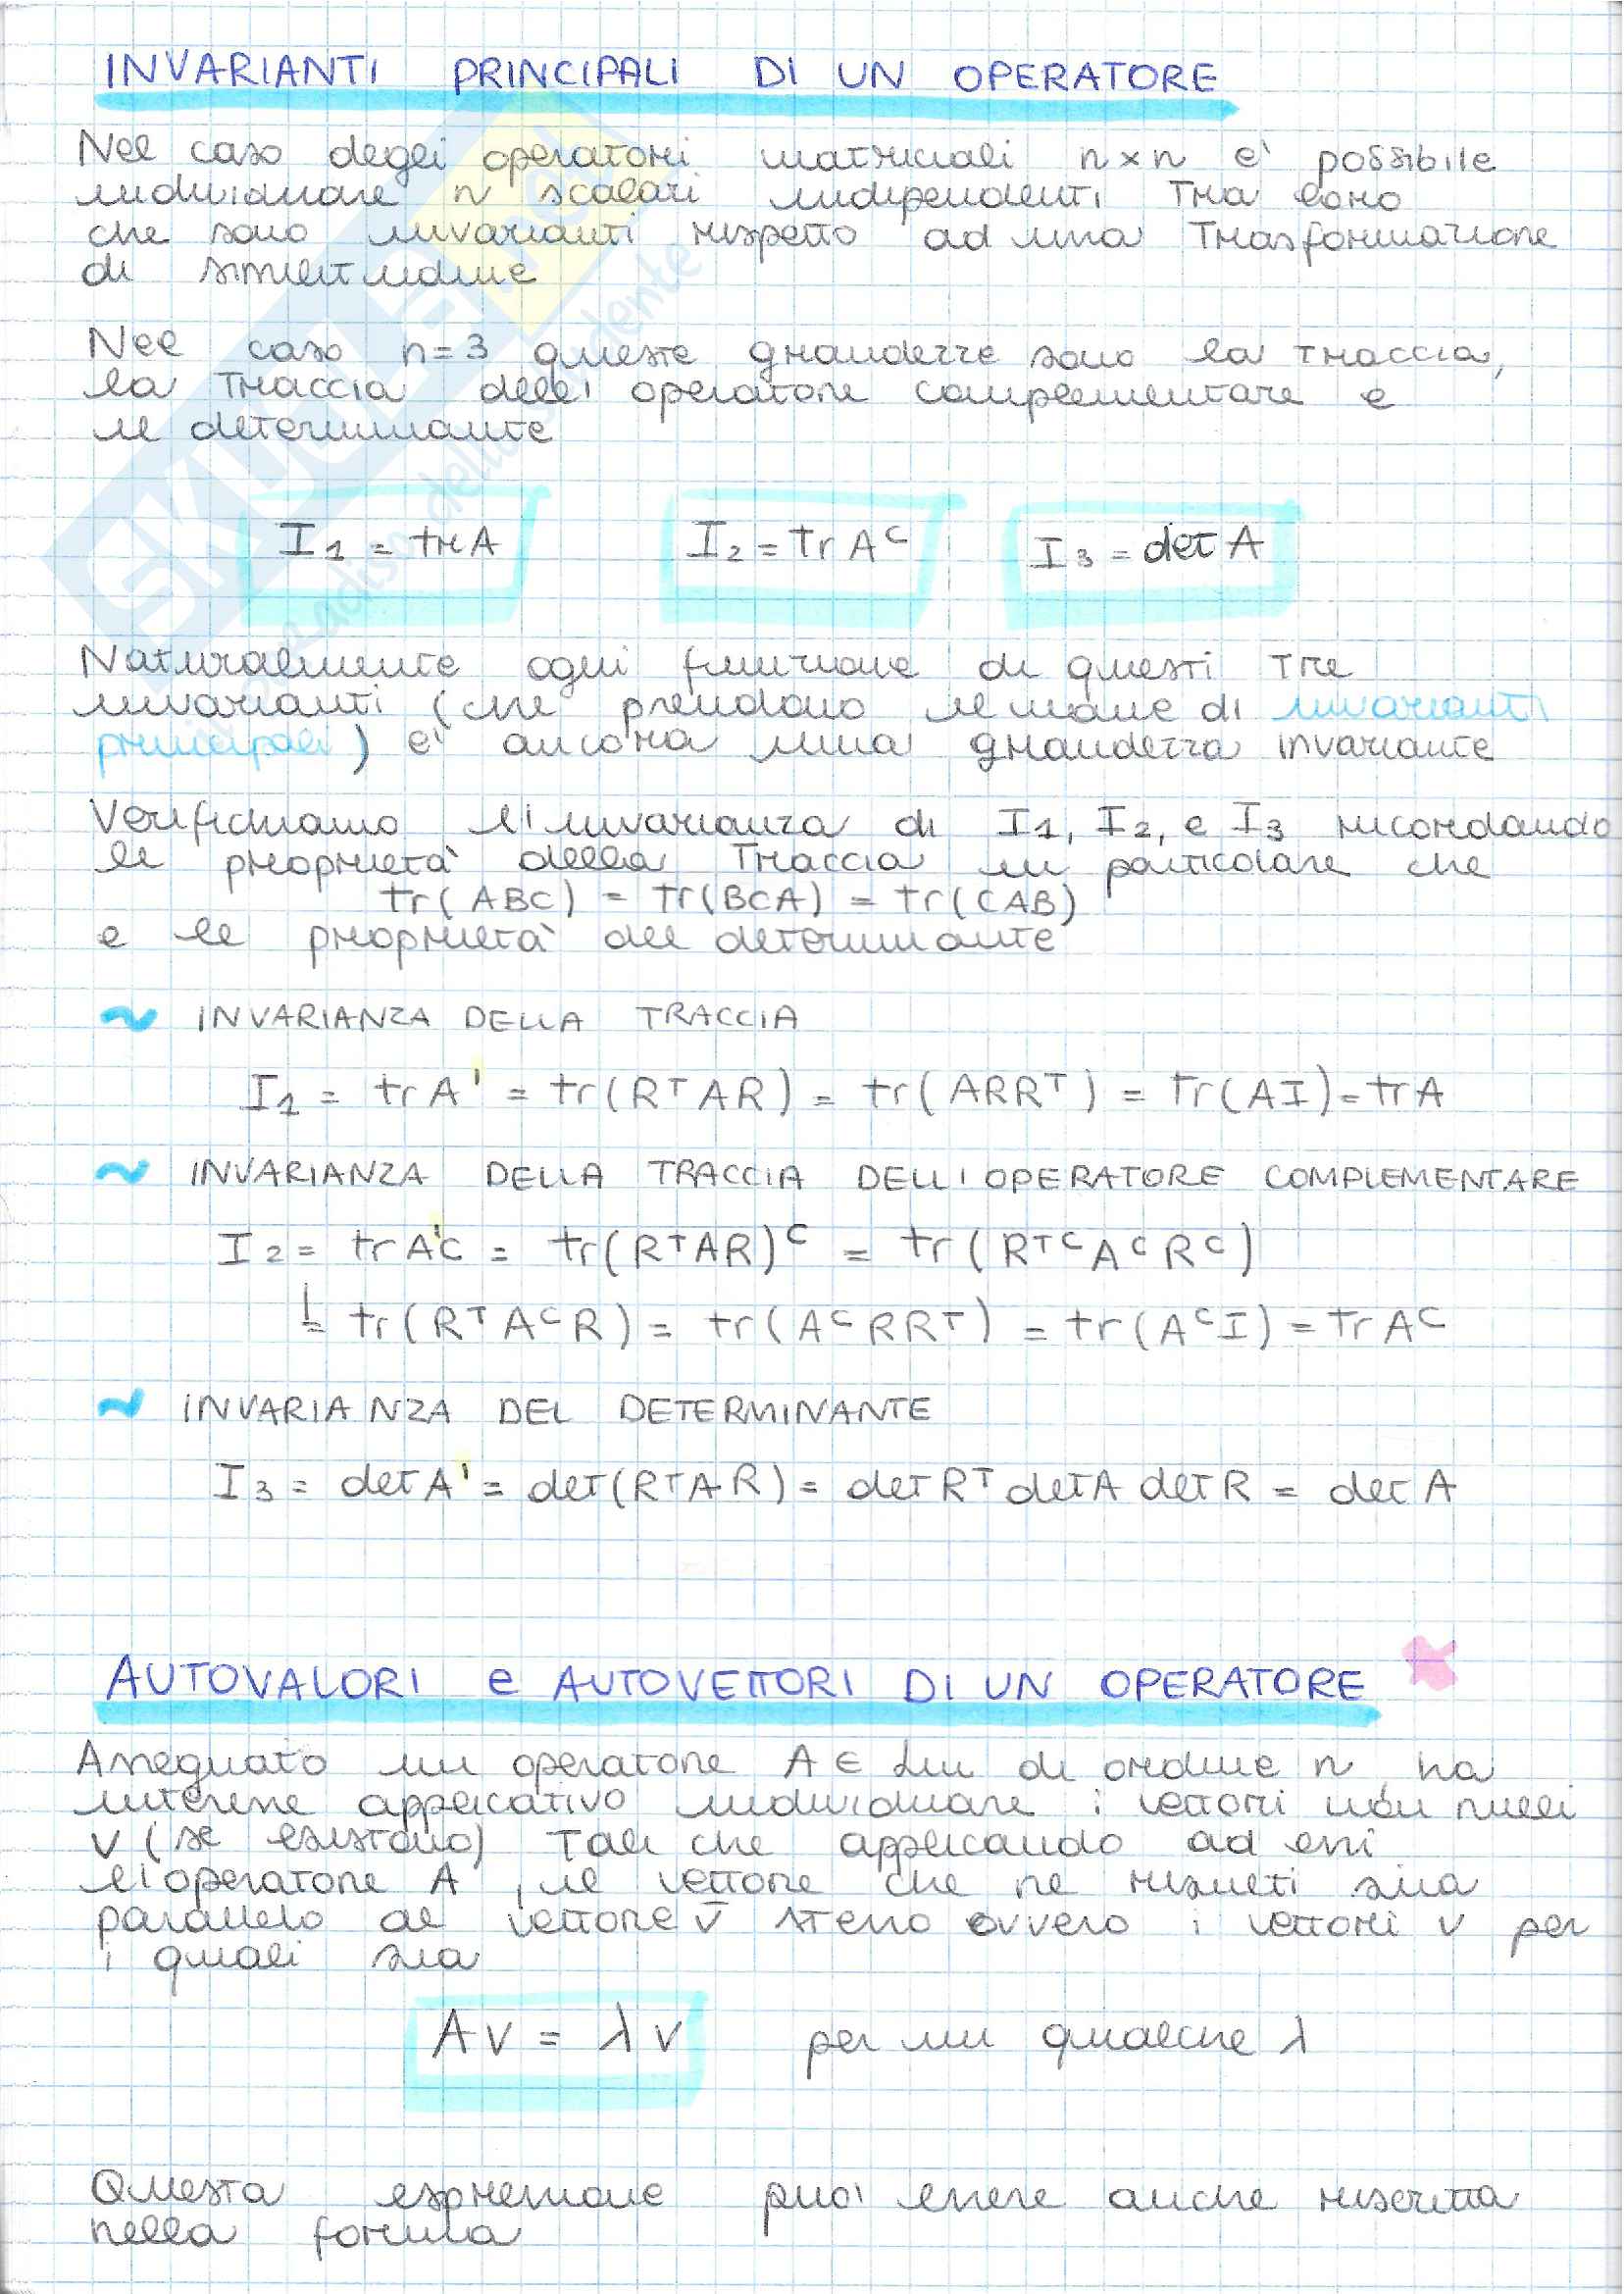 INVARIANTI PRINCIPALI DI UN OPERATORE
Nel caso degli operatori matriciali n×n e' possibile
individuare n scalari indipendenti tra loro
che sono invarianti rispetto ad una trasformazione
di similitudine
Nel caso n=3 queste grandezze sono la traccia,
la traccia dell' operatore complementare e
il determinante
I₁ = tr A
I₂ = tr Aᶜ
I₃ = det A
Naturalmente ogni funzione di questi tre
invarianti (che prendono il nome di invarianti
principali) e' ancora una grandezza invariante
Verifichiamo l'invarianza di I₁, I₂, e I₃ ricordando
le proprietà della traccia in particolare che
tr(ABC) = tr(BCA) = tr(CAB)
e le proprietà del determinante
~ INVARIANZA DELLA TRACCIA
I₁ = tr A' = tr(RᵀAR) = tr(ARRᵀ) = tr(AI) = tr A
~ INVARIANZA DELLA TRACCIA DELL'OPERATORE COMPLEMENTARE
I₂ = tr A'ᶜ = tr(RᵀAR)ᶜ = tr(RᵀᶜAᶜRᶜ)
= tr(RᵀAᶜR) = tr(AᶜRRᵀ) = tr(AᶜI) = tr Aᶜ
~ INVARIANZA DEL DETERMINANTE
I₃ = det A' = det(RᵀAR) = det Rᵀ det A det R = det A
AUTOVALORI e AUTOVETTORI DI UN OPERATORE
Assegnato un operatore A ∈ Lin di ordine n, ha
interesse applicativo individuare i vettori non nulli
v (se esistono) tali che applicando ad essi
l'operatore A, il vettore che ne risulti sia
parallelo al vettore v̄ stesso ovvero i vettori v per
i quali sia
Av = λv per un qualche λ
Questa espressione puo' essere anche riscritta
nella forma
SKUOLA